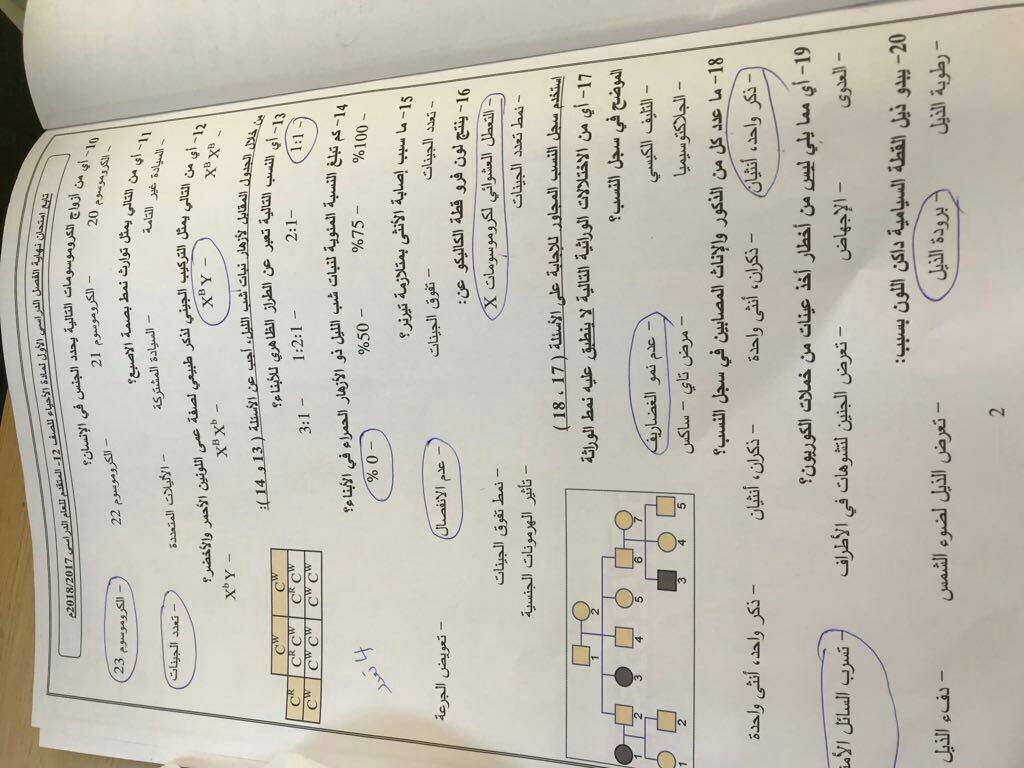 تابع امتحان نهاية الفصل الدراسي الأول لمادة الأحياء للصف 12- المتقدم للعام الدراسي 2018/2017م
10- أي من أزواج الكروموسومات التالية يحدد الجنس في الإنسان؟
- الكروموسوم 20 - الكروموسوم 21 - الكروموسوم 22 - الكروموسوم 23
11- أي من التالي يمثل توارث نمط بصمة الاصبع؟
- السيادة غير التامة - السيادة المشتركة - الأليلات المتعددة - تعدد الجينات
12- أي من التالي يمثل التركيب الجيني لذكر طبيعي لصفة عمى اللونين الأحمر والأخضر؟
- Xᴮ Xᴮ - Xᴮ Y - Xᴮ Xᵇ - Xᵇ Y
من خلال الجدول المقابل لأزهار نبات شب الليل، أجب عن الأسئلة ( 13 و 14 ):
Cᵂ Cᵂ
Cᴿ Cᴿ Cᵂ Cᴿ Cᵂ
Cᵂ Cᵂ Cᵂ Cᵂ Cᵂ
13- أي النسب التالية تعبر عن الطراز الظاهري للأبناء؟
- 1:1 - 2:1 - 1:2:1 - 3:1
14- كم تبلغ النسبة المئوية لنبات شب الليل ذو الأزهار الحمراء في الأبناء؟
- 100% - 75% - 50% - 0 %
15- ما سبب إصابة الأنثى بمتلازمة تيرنر؟
- تعدد الجينات - تفوق الجينات - عدم الانفصال - تعويض الجرعة
16- ينتج لون فرو قطة الكاليكو عن:
- التعطل العشوائي لكروموسومات X - نمط تفوق الجينات
- نمط تعدد الجينات - تأثير الهرمونات الجنسية
استخدم سجل النسب المجاور للإجابة على الأسئلة ( 17 ، 18 )
17- أي من الاختلالات الوراثية التالية لا ينطبق عليه نمط الوراثة
الموضح في سجل النسب؟
- التليف الكيسي - عدم نمو الغضاريف
- الجلاكتوسيميا - مرض تاي - ساكس
1 2
1 2 3 4 5 6 7
1 2 3 4 5
18- ما عدد كل من الذكور والإناث المصابين في سجل النسب؟
- ذكر واحد، أنثيان - ذكران، أنثى واحدة - ذكران، أنثيان - ذكر واحد، أنثى واحدة
19- أي مما يلي ليس من أخطار أخذ عينات من خملات الكوريون؟
- العدوى - الإجهاض - تعرض الجنين لتشوهات في الأطراف - تسرب السائل
20- يبدو ذيل القطة السيامية داكن اللون بسبب:
- رطوبة الذيل - برودة الذيل - تعرض الذيل لضوء الشمس - دفء الذيل
2